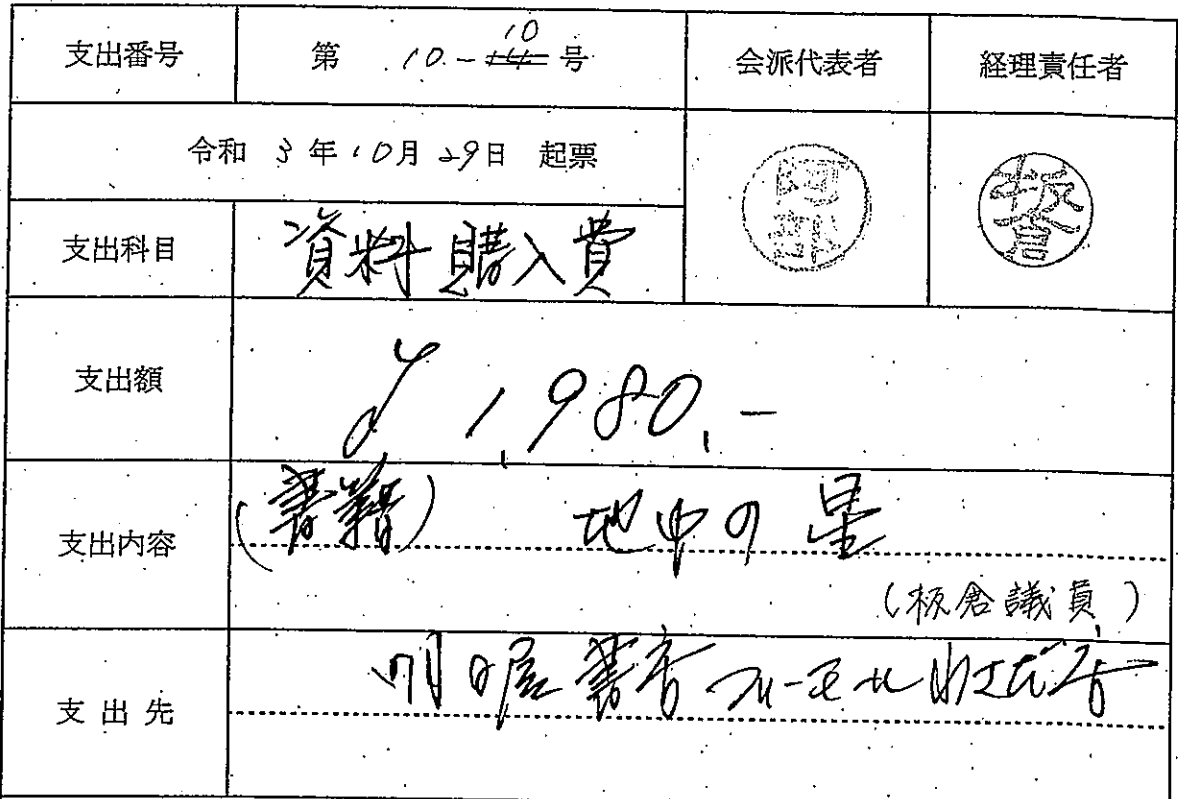 支出番号 第 10-10 号 会派代表者 経理責任者
令和 3 年 10月 29日 起票
阿部
支出科目 資料購入費
支出額 ¥1,980.-
支出内容 (書籍) 地中の星
(板倉議員)
支出先 明屋書店